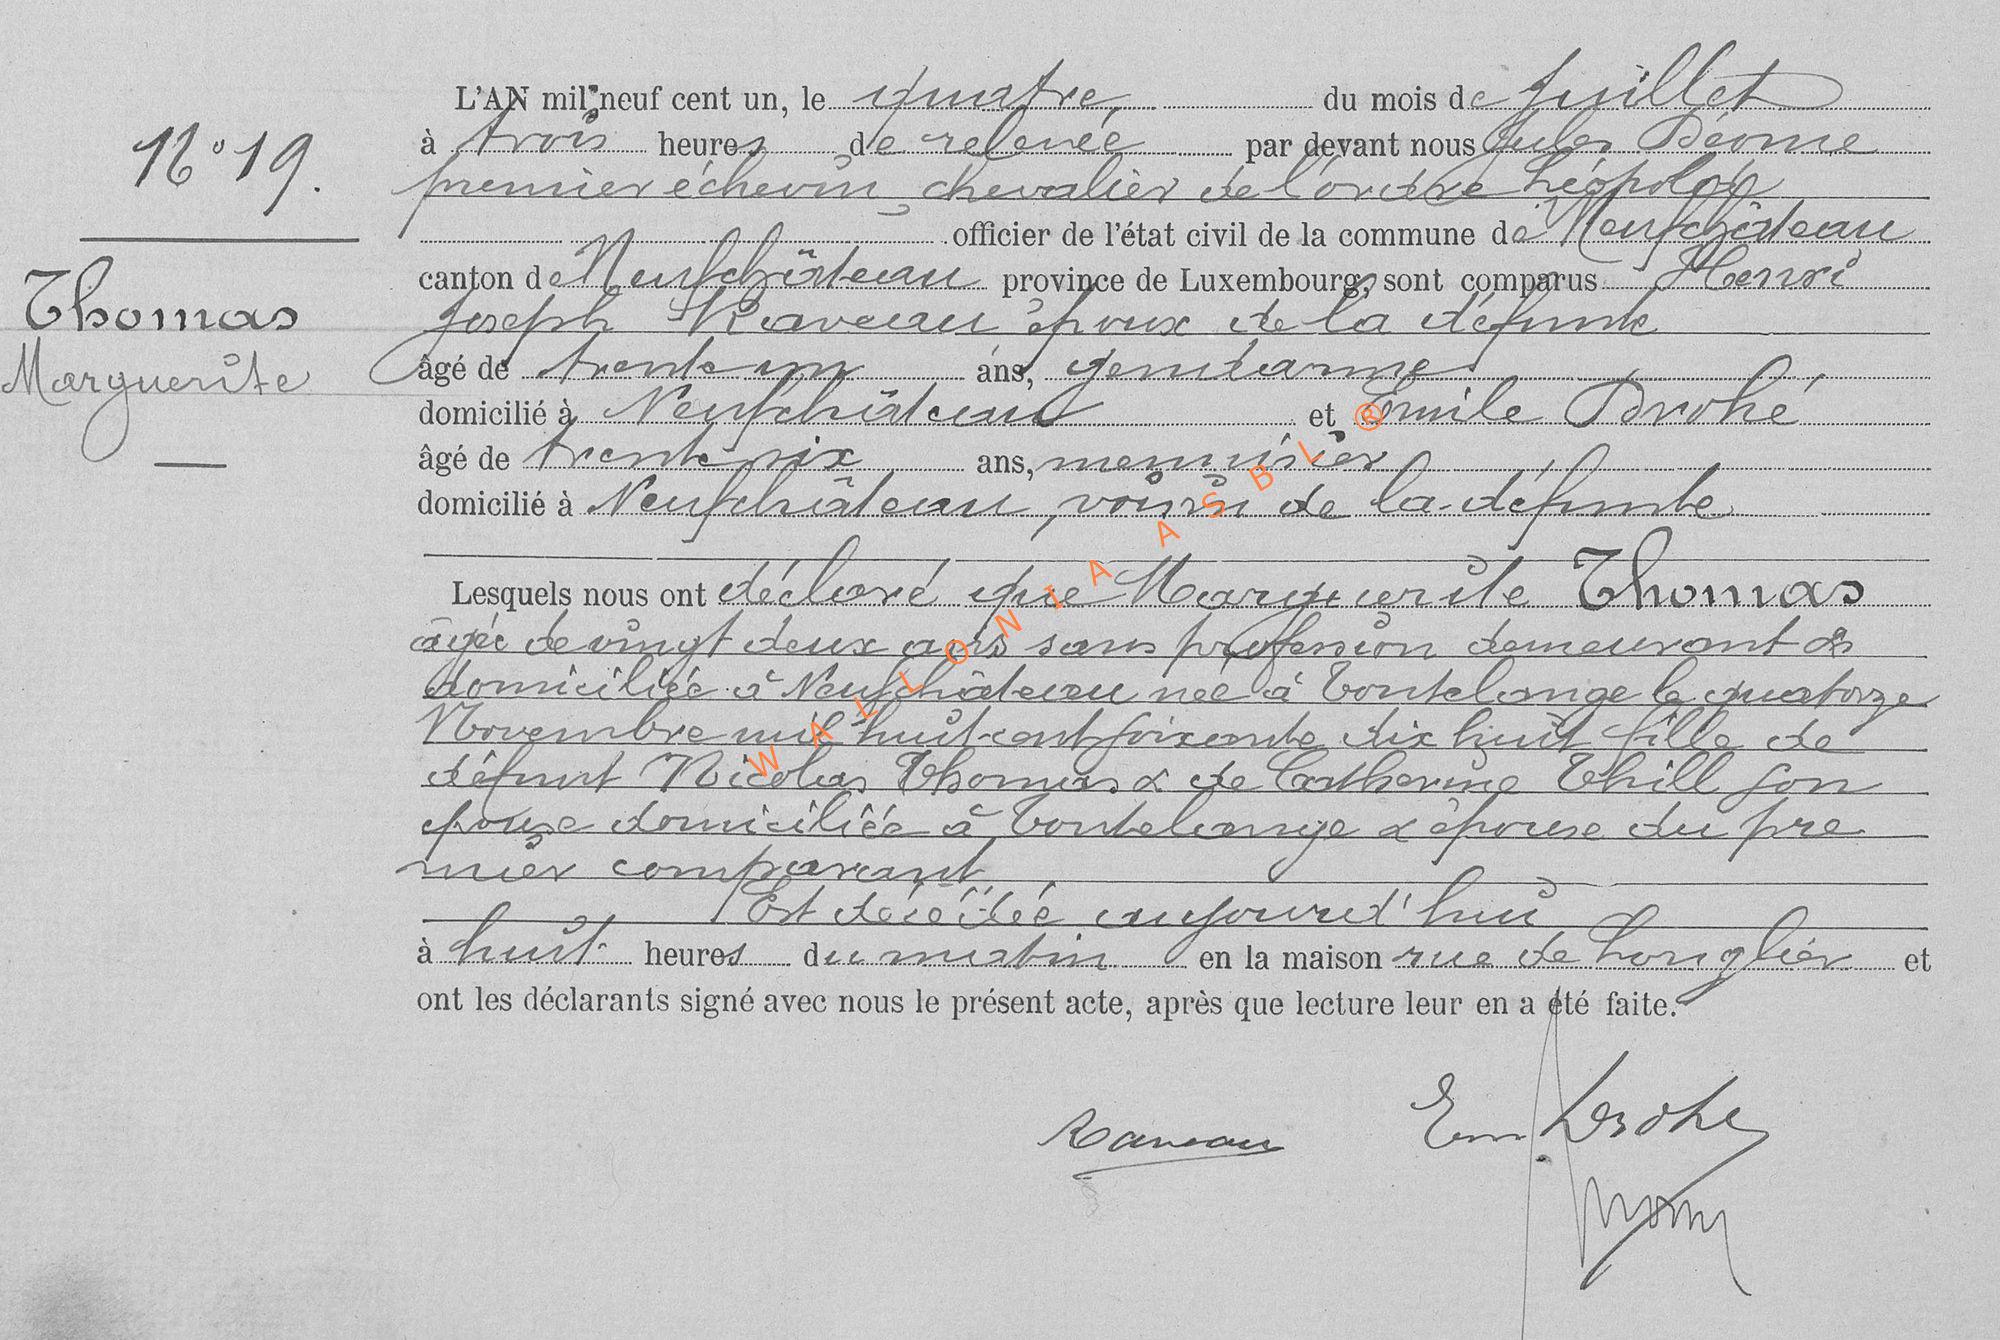 N° 19.
Thomas
Marguerite
L'AN mil neuf cent un, le quatre du mois de Juillet
à trois heures de relevée par devant nous Jules Déome
premier échevin, chevalier de l'ordre Léopold
officier de l'état civil de la commune de Neufchâteau
canton de Neufchâteau province de Luxembourg, sont comparus Henri
Joseph Raveau époux de la défunte
âgé de trente un ans, gendarme
domicilié à Neufchâteau et Emile Drohé
âgé de trente six ans, menuisier
domicilié à Neufchâteau, voisin de la défunte
Lesquels nous ont déclaré que Marguerite Thomas
âgée de vingt deux ans sans profession demeurant &
domiciliée à Neufchâteau née à Tontelange le quatorze
Novembre mil huit cent soixante dix huit fille de
défunt Nicolas Thomas & de Catherine Thill son
épouse domiciliée à Tontelange & épouse du pre
mier comparant
Est décédée aujourd'hui
à huit heures du matin en la maison rue de Longlier et
ont les déclarants signé avec nous le présent acte, après que lecture leur en a été faite.
Raveau
Em. Drohé
WALLONIA ASBL ®